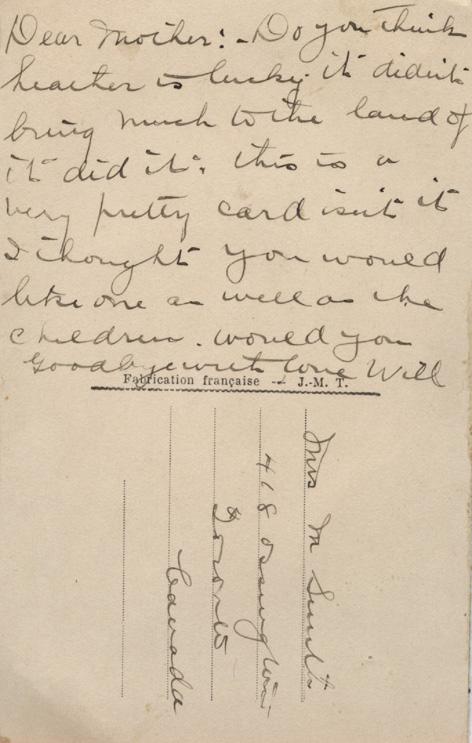 Dear Mother:- Do you think
heather is lucky it didn't
bring much to the land of
it did it. this is a
very pretty card isn't it
I thought you would
like one as well as the
children. would you
Goodbye with love Will
Fabrication française -- J.-M. T.
Mrs M Smith
418 Ossington
Toronto
Canada